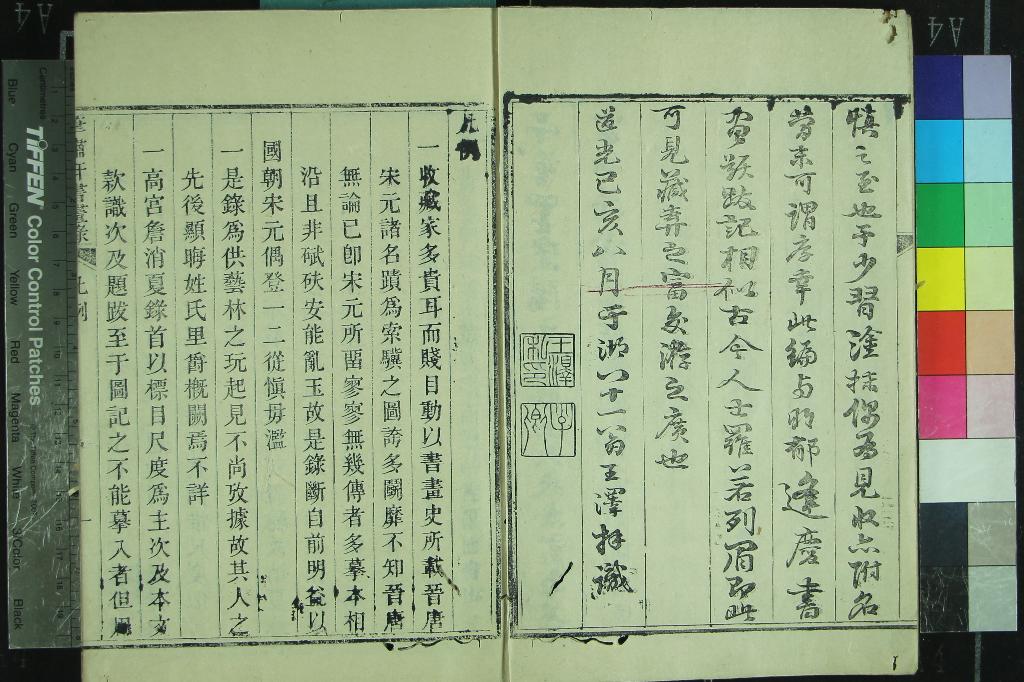 慎之至也予少習塗抹偶為見收亦附名
旁末可謂厚幸此編与明郁逢慶書
畫題跋記相似古今人士羅若列眉即此
可見藏弆之富交游之廣也
道光己亥八月乎湖八十一翁王澤拜識
凡例
一收藏家多貴耳而賤目動以書畫史所載晉唐
宋元諸名蹟爲索驥之圖誇多鬬靡不知晉唐
無論已卽宋元所畱寥寥無幾傳者多摹本相
沿且非碔砆安能亂玉故是錄斷自前明益以
國朝宋元偶登一二從愼毋濫
一是錄爲供藝林之玩起見不尚攷據故其人之
先後顯晦姓氏里爵槪闕焉不詳
一高宮詹消夏錄首以標目尺度爲主次及本文
款識次及題跋至于圖記之不能摹入者但
書畫錄
凡例
一
TIFFEN Color Control Patches
Centimetres
Blue
Cyan
Green
Yellow
Red
Magenta
White
3/Color
Black
A4
A4